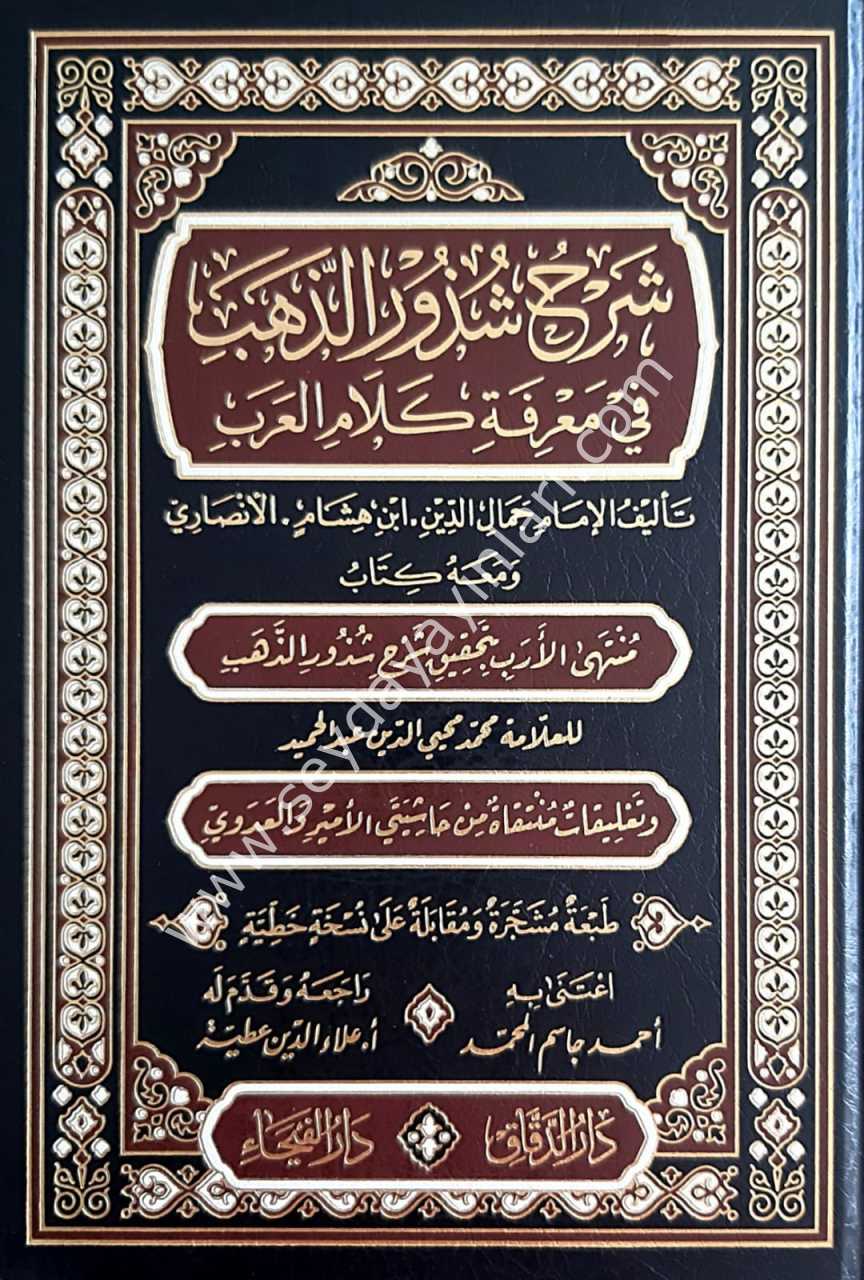 شَرْحُ شُذُورِ الذَّهَبِ
فِي مَعْرِفَةِ كَلَامِ العَرَبِ
تَأليفُ الإمَامِ جَمَالِ الدِّينِ . ابْنِ هِشَامٍ . الأنْصَارِيِّ
وَمَعَهُ كِتَابُ
مُنْتَهَى الأَرَبِ بِتَحْقِيقِ شَرْحِ شُذُورِ الذَّهَبِ
للعلّامة محمّد محيي الدّين عبد الحميد
وَتَعْلِيقَاتٌ مُنْتَقَاةٌ مِنْ حَاشِيَتَيِ الأَمِيرِ وَالعَدَوِيِّ
طَبْعَةٌ مُشَجَّرَةٌ وَمُقَابَلَةٌ عَلَى نُسْخَةٍ خَطِّيَّةٍ
اعْتَنَى بِهِ
أحمد جاسم المحمّد
رَاجَعَهُ وَقَدَّمَ لَهُ
أ. علاء الدّين عطيّة
دَارُ الدَّقَّاقِ
دَارُ الفَيْحَاءِ
www.seydayayinlari.com